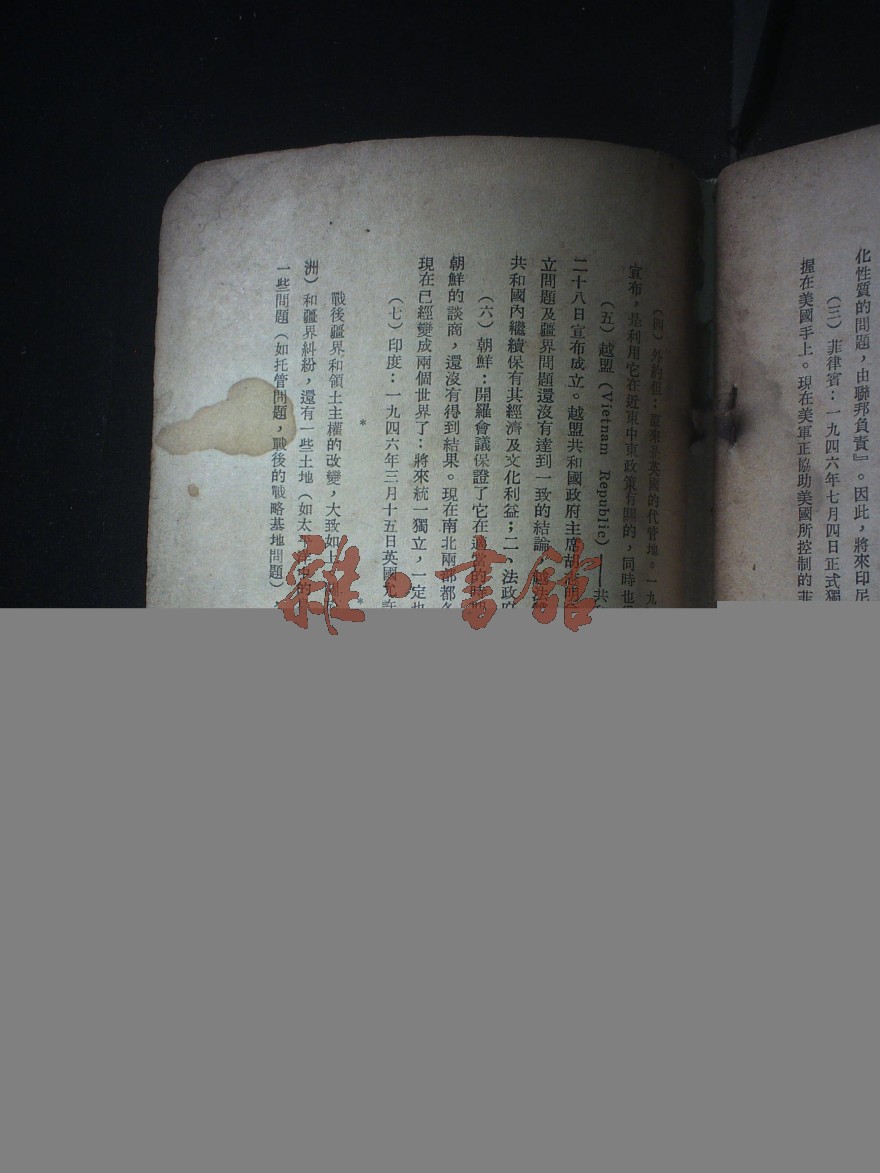 化性質的問題，由聯邦負責』。因此，將來印尼
（三）菲律賓：一九四六年七月四日正式獨
握在美國手上。現在美軍正協助美國所控制的菲
（四）外約但：原來是英國的代管地。一九
宣布，是利用它在近東中東政策有關的，同時也
（五）越盟（Vietnam Republie）——共
二十八日宣布成立。越盟共和國政府主席胡志明
立問題及疆界問題還沒有達到一致的結論，越法
共和國內繼續保有其經濟及文化利益；二、法政府
（六）朝鮮：開羅會議保證了它在適當的時期
朝鮮的談商，還沒有得到結果。現在南北兩部都
現在已經變成兩個世界了：將來統一獨立，一定也
（七）印度：一九四六年三月十五日英國允許
* *
戰後疆界和領土主權的改變，大致如上
洲）和疆界糾紛，還有一些土地（如太平洋中的
一些問題（如托管問題，戰後的戰略基地問題）
雜·書館